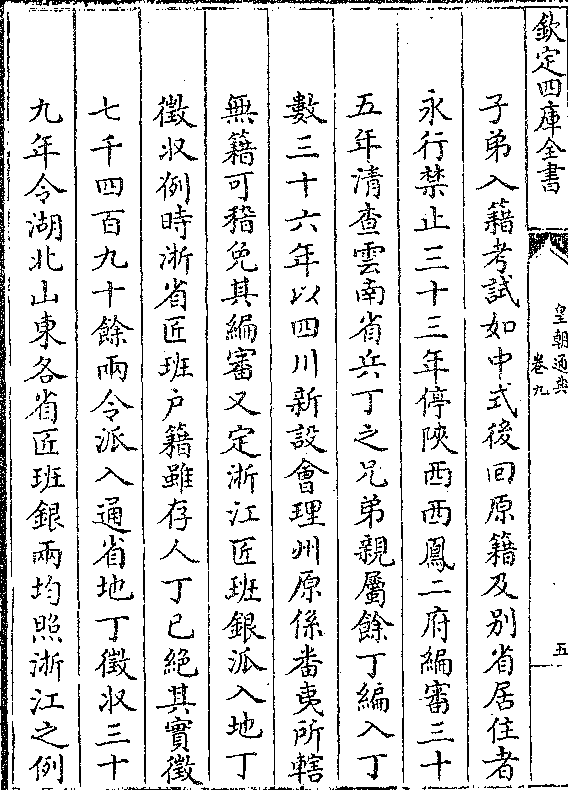 欽定四庫全書
皇朝通典
卷九
五
子弟入籍考試如中式後回原籍及別省居住者
永行禁止三十三年停陝西西鳳二府編審三十
五年清查雲南省兵丁之兄弟親屬餘丁編入丁
數三十六年以四川新設會理州原係番夷所轄
無籍可稽免其編審又定浙江匠班銀派入地丁
徵収例時浙省匠班户籍雖存人丁已絕其實徵
七千四百九十餘兩令派入通省地丁徵収三十
九年令湖北山東各省匠班銀兩均照浙江之例